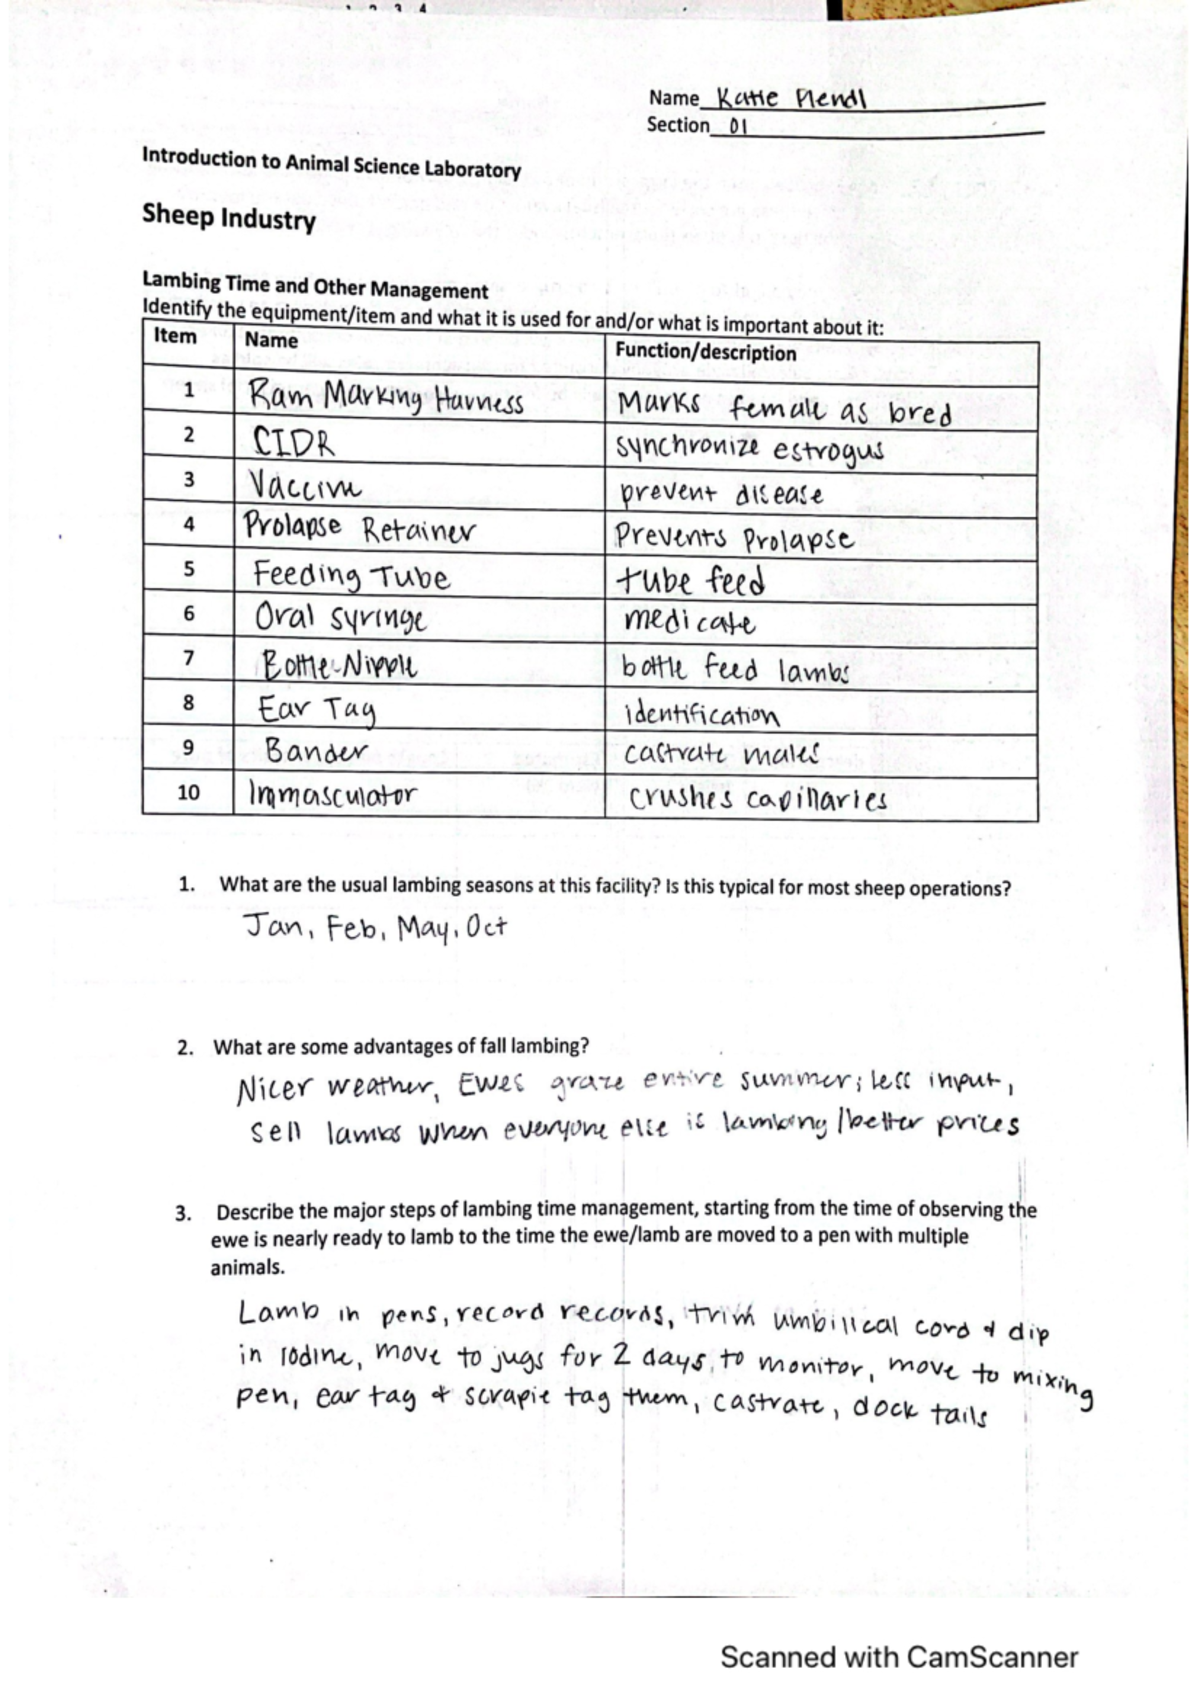 1 2 3 4
Name Katie Fiendl
Section 01
Introduction to Animal Science Laboratory
Sheep Industry
Lambing Time and Other Management
Identify the equipment/item and what it is used for and/or what is important about it:
Item Name Function/description
1 Ram Marking Harness Marks female as bred
2 CIDR synchronize estrogus
3 Vaccine prevent disease
4 Prolapse Retainer Prevents Prolapse
5 Feeding Tube tube feed
6 Oral syringe medicate
7 Bottle-Nipple bottle feed lambs
8 Ear Tag identification
9 Bander castrate males
10 Immasculator crushes capillaries
1. What are the usual lambing seasons at this facility? Is this typical for most sheep operations?
Jan, Feb, May, Oct
2. What are some advantages of fall lambing?
Nicer weather, Ewes graze entire summer; less input,
sell lambs when everyone else is lambing/better prices
3. Describe the major steps of lambing time management, starting from the time of observing the
ewe is nearly ready to lamb to the time the ewe/lamb are moved to a pen with multiple
animals.
Lamb in pens, record records, trim umbilical cord & dip
in iodine, move to jugs for 2 days, to monitor, move to mixing
pen, ear tag & scrapie tag them, castrate, dock tails
Scanned with CamScanner